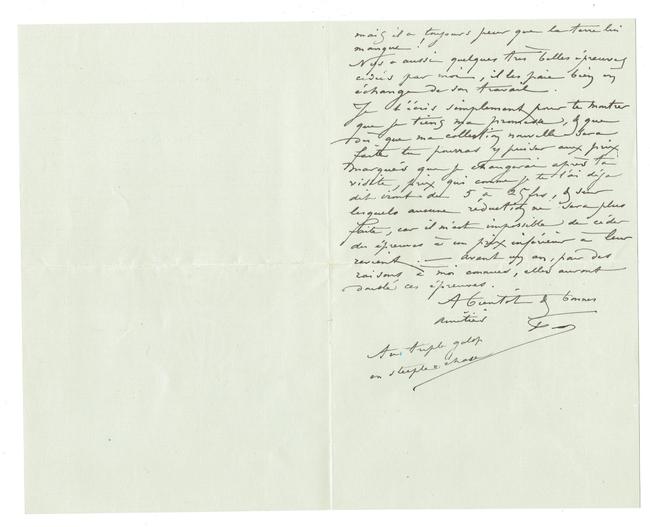 mais il a toujours peur que la terre lui
manque !
Nys a aussi quelques très belles épreuves
cédées par moi, il les paie bien en
échange de son travail.
Je t'écris simplement pour te montrer
que je tiens ma promesse, & que
dès que ma collection nouvelle sera
faite tu pourras y puiser aux prix
marqués que je changerai après ta
visite, prix qui comme je te l'ai déjà
dit iront de 5 à 25 frs, & sur
lesquels aucune réduction ne sera plus
faite, car il m'est impossible de céder
des épreuves à un prix inférieur à leur
revient. — Avant un an, par des
raisons à moi connues, elles auront
doublé ces épreuves.
A bientôt & bonnes
amitiés
Au triple galop
en steeple-chase